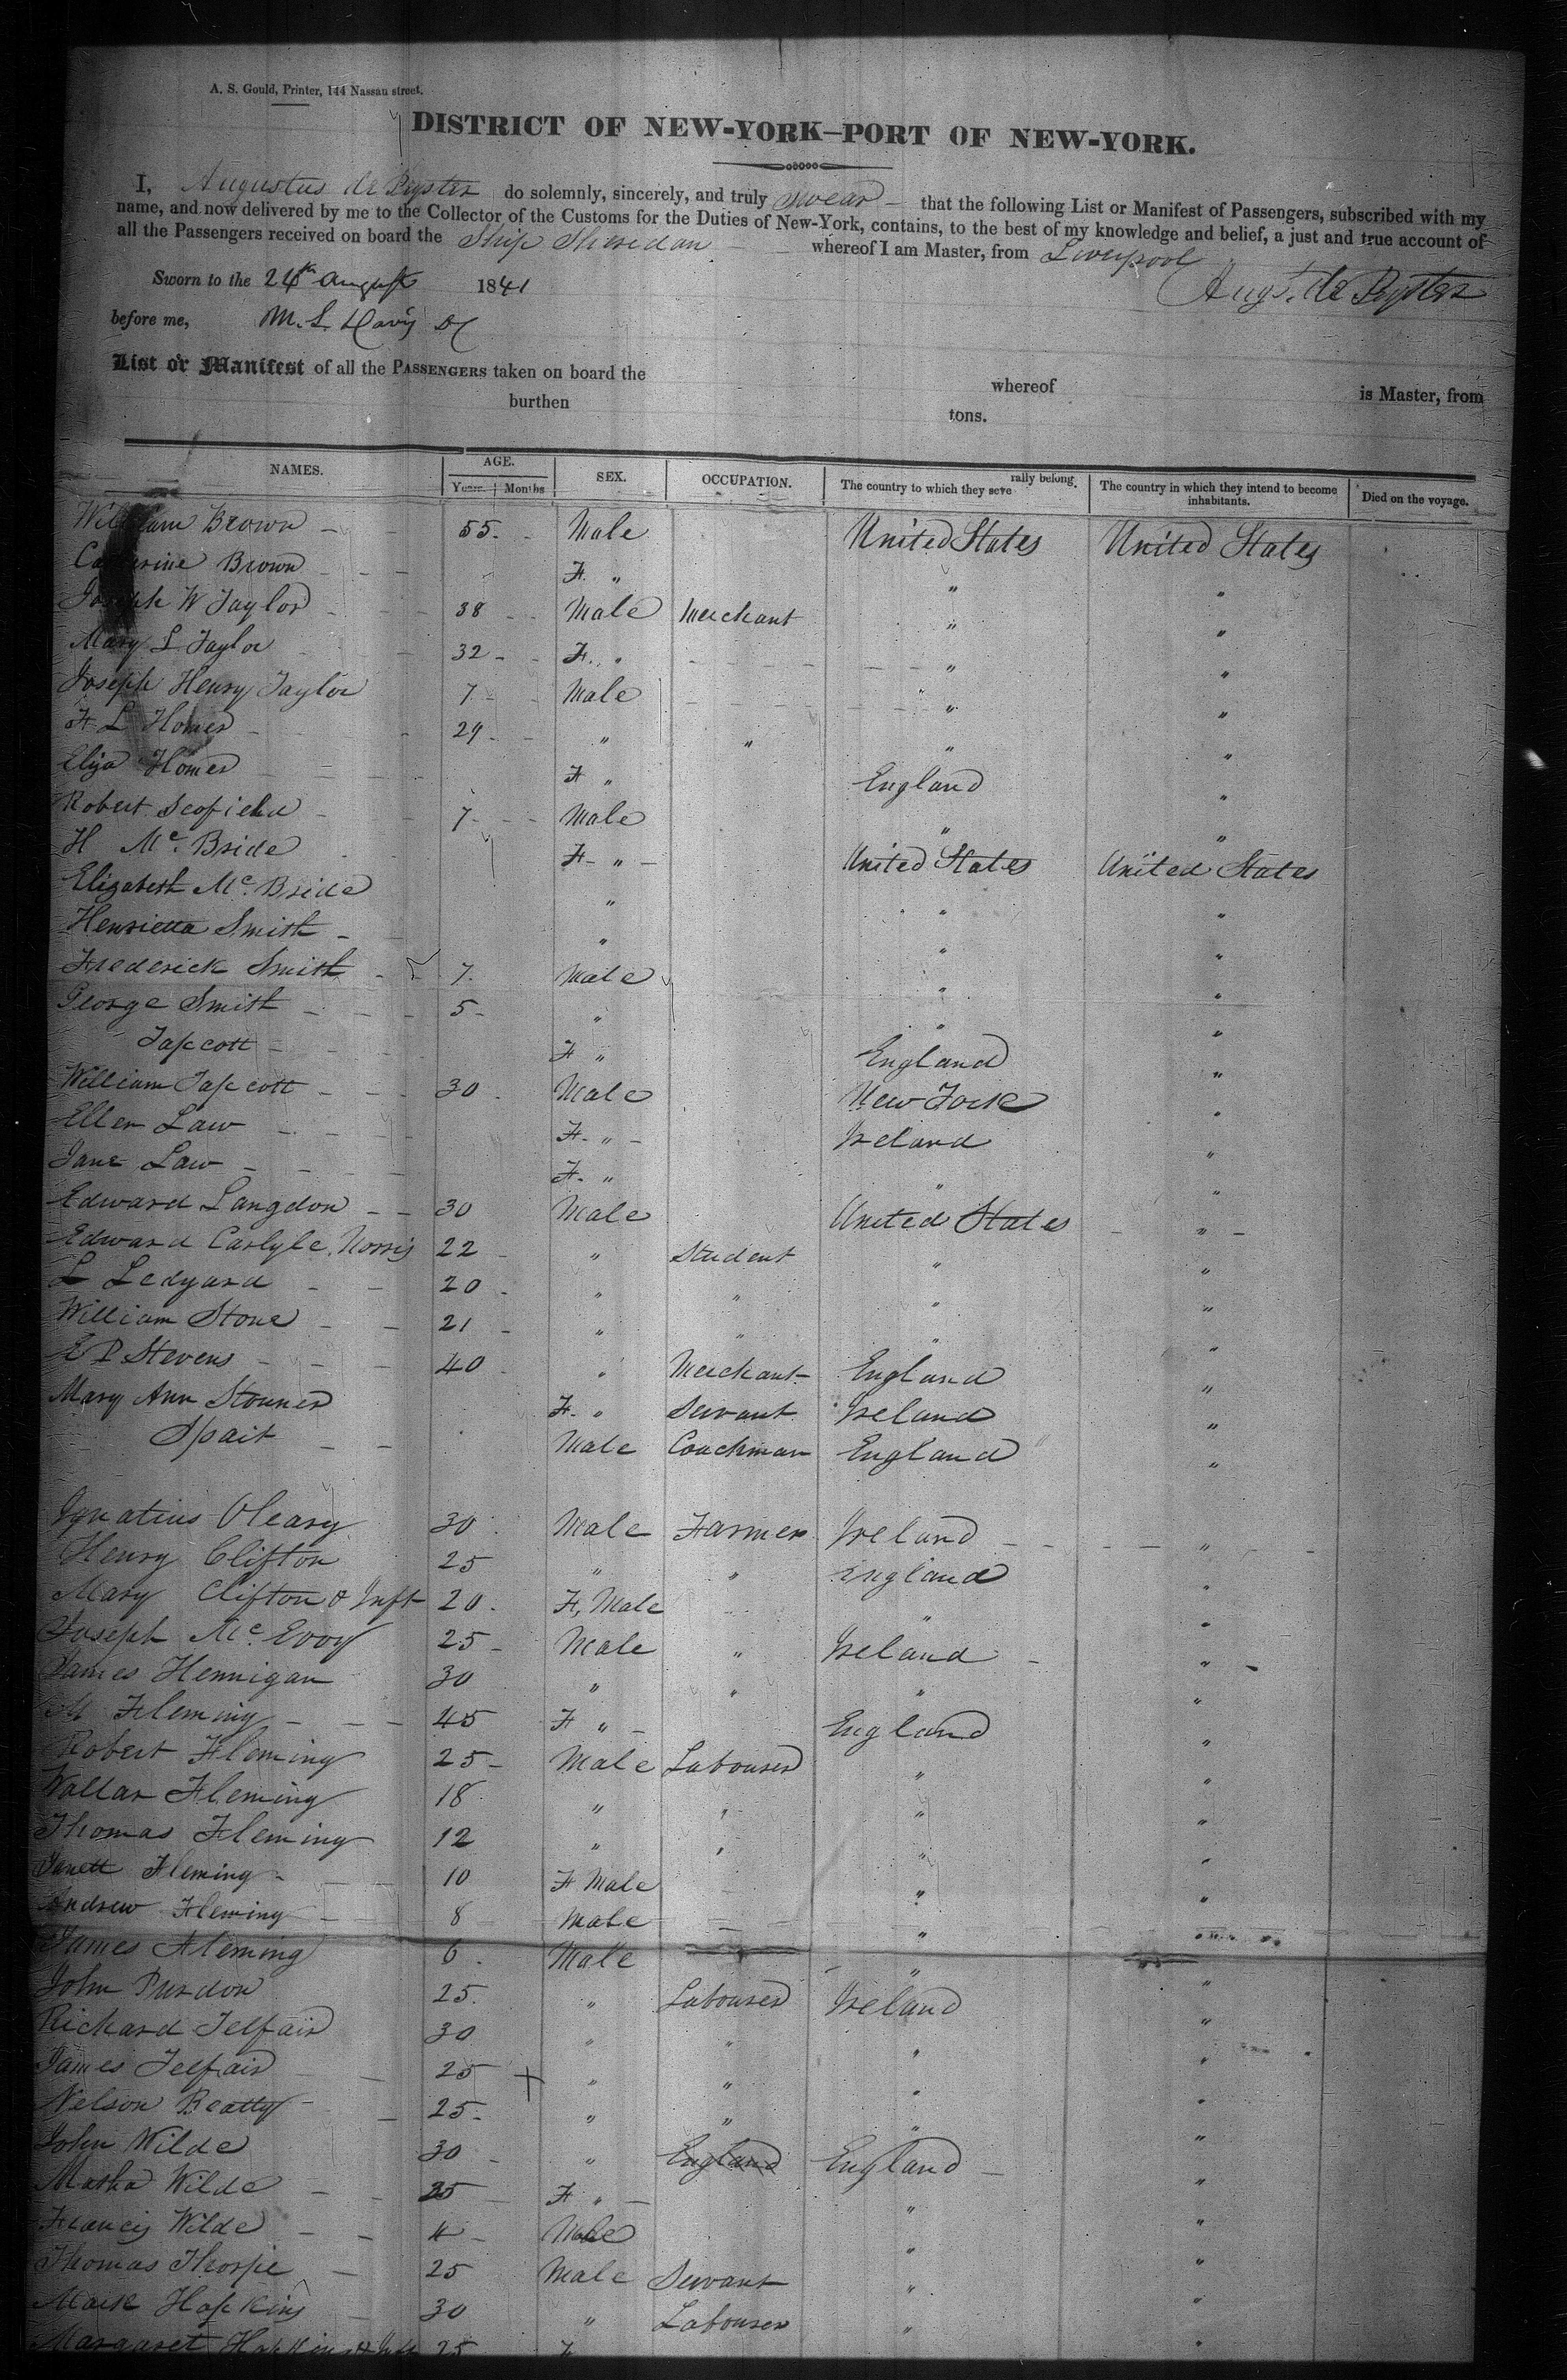 A. S. Gould, Printer, 144 Nassau street.
DISTRICT OF NEW-YORK—PORT OF NEW-YORK.
I, Augustus de Peyster do solemnly, sincerely, and truly swear – that the following List or Manifest of Passengers, subscribed with my
name, and now delivered by me to the Collector of the Customs for the Duties of New-York, contains, to the best of my knowledge and belief, a just and true account of
all the Passengers received on board the Ship Sheridan – whereof I am Master, from Liverpool
Augs. de Peyster
Sworn to the August 1841
before me, M. L. Davis
List or Manifest of all the PASSENGERS taken on board the whereof is Master, from
burthen tons.
NAMES. AGE. Years. Months SEX. OCCUPATION. The country to which they severally belong. The country in which they intend to become inhabitants. Died on the voyage.
William Brown – 55. Male United States United States
Catherine Brown F. " " "
Joseph W Taylor 38 Male Merchant " "
Mary L Taylor 32 F. " " "
Joseph Henry Taylor 7 Male " "
F L Homer 29 " " " "
Eliza Homer F " England "
Robert Scofield 7 Male " "
H Mc. Bride F " United States United States
Elizabeth Mc. Bride " " "
Henrietta Smith " " "
Frederick Smith 7. Male " "
George Smith 5 " " "
Tapcott F " England "
William Tapcott 30 Male New York "
Ellen Law F. " Ireland "
Jane Law F. " " "
Edward Langdon 30 Male United States "
Edward Carlyle Norris 22 " Student " "
L Ledyard 20 " " " "
William Stone 21 " " " "
E P Stevens 40 " Merchant England "
Mary Ann Stonner F. " Servant Ireland "
Spait Male Coachman England "
Ignatius Oleary 30 Male Farmer Ireland "
Henry Clifton 25 " " England "
Mary Clifton & Inft 20. F, Male " "
Joseph Mc. Evoy 25 Male " Ireland "
James Hennigan 30 " " " "
M Fleming 45 F " England "
Robert Fleming 25 Male Labourer " "
Wallar Fleming 18 " " " "
Thomas Fleming 12 " " " "
Janett Fleming 10 F Male " "
Andrew Fleming 8 Male " "
James Fleming 6 Male " "
John Purdon 25. " Labourer Ireland "
Richard Telfair 30 " " " "
James Telfair 25 + " " " "
Nelson Beatty 25. " " " "
John Wilde 30 " England England "
Matha Wilde 25 F " " "
Francis Wilde 4 Male " "
Thomas Thorpe 25 Male Servant " "
Mark Hopkins 30 " Labourer " "
Margaret Hopkins & Inft 25 F "